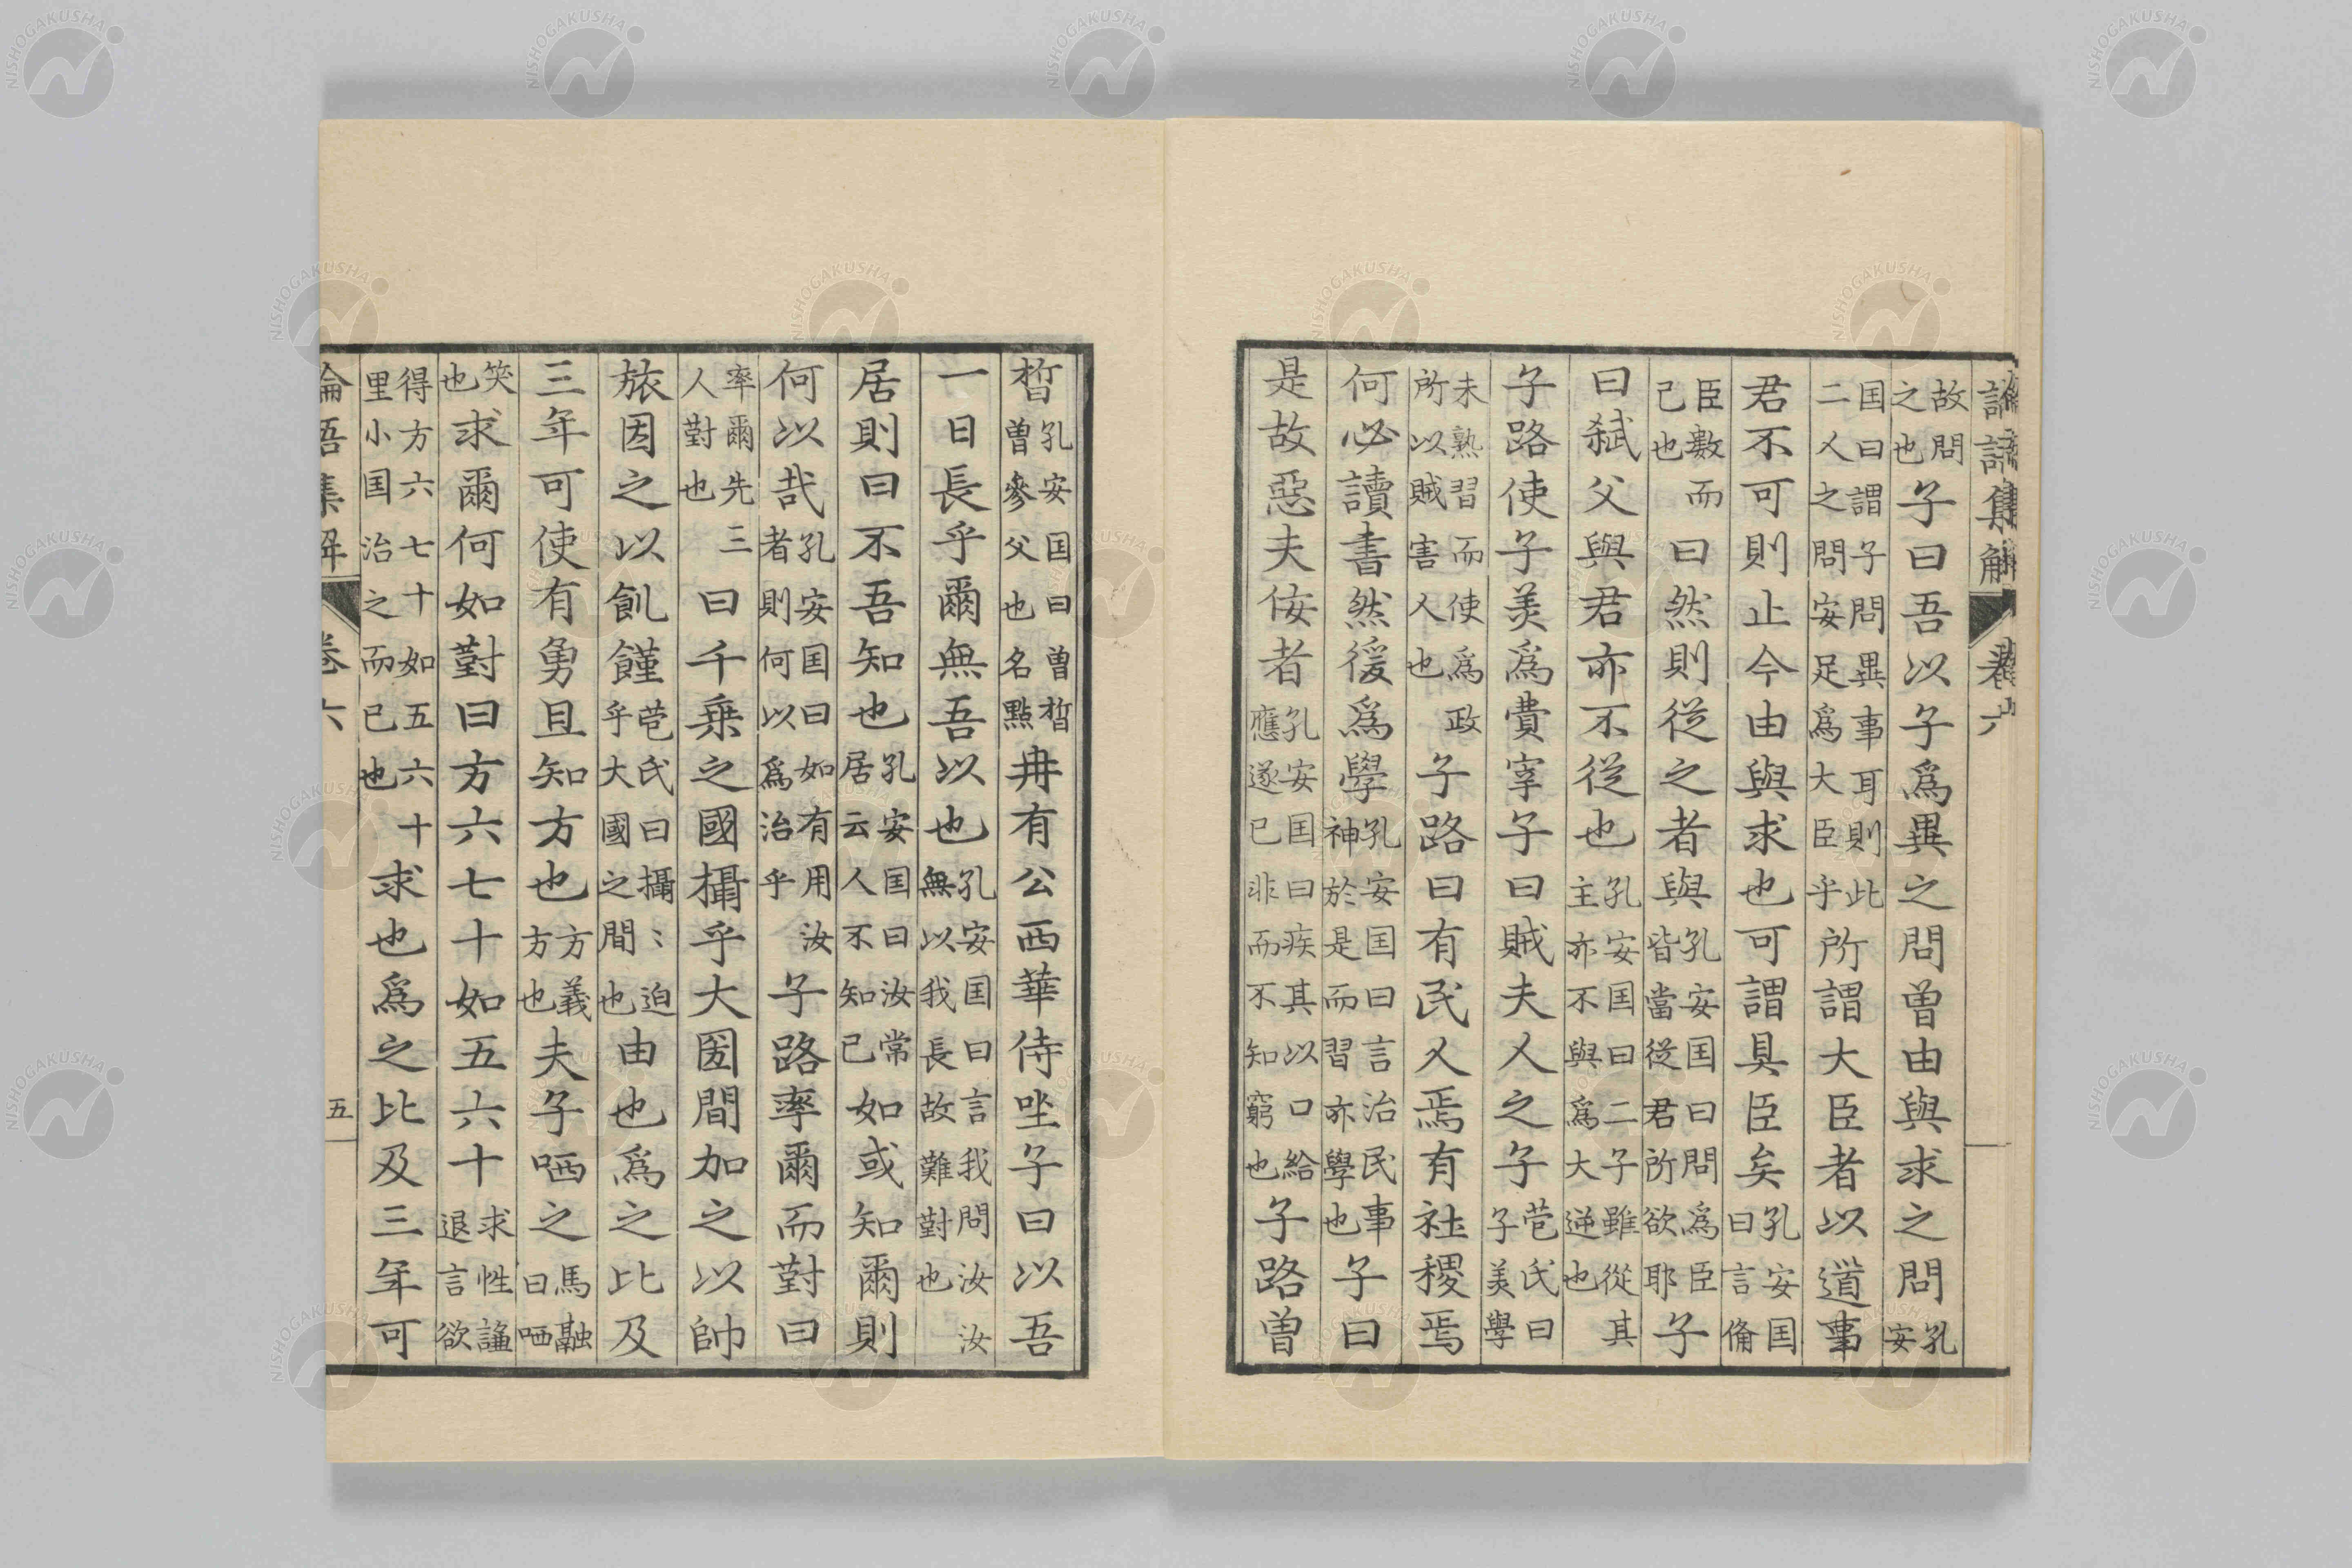 論語集解 卷六
故問之也子曰吾以子爲異之問曽由與求之問孔安
囯曰謂子問異事耳則此二人之問安足爲大臣乎所謂大臣者以道事
君不可則止今由與求也可謂具臣矣孔安囯曰言俻
臣數而已也曰然則従之者與孔安囯曰問爲臣皆當従君所欲耶子
曰弑父與君亦不従也孔安囯曰二子雖從其主亦不與爲大逆也
子路使子羔爲費宰子曰賊夫人之子苞氏曰子羔學
未熟習而使爲政所以賊害人也子路曰有民人焉有社稷焉
何必讀書然後爲學孔安囯曰言治民事神於是而習亦學也子曰
是故惡夫佞者孔安囯曰疾其以口給應遂已非而不知窮也子路曽
晳孔安囯曰曽晳曽參父也名點冉有公西華侍坐子曰以吾
一日長乎爾無吾以也孔安囯曰言我問汝汝無以我長故難對也
居則曰不吾知也孔安囯曰汝常居云人不知已如或知爾則
何以哉孔安囯曰如有用汝者則何以爲治乎子路率爾而對曰
率爾先三人對也曰千乗之國攝乎大囯間加之以帥
旅因之以飢饉苞氏曰攝〻迫乎大國之間也由也爲之比及
三年可使有勇且知方也方義方也夫子哂之馬融曰哂
笑也求爾何如對曰方六七十如五六十求性謙退言欲
得方六七十如五六十里小囯治之而已也求也爲之比及三年可
論語集解 卷六 五
NISHOGAKUSHA